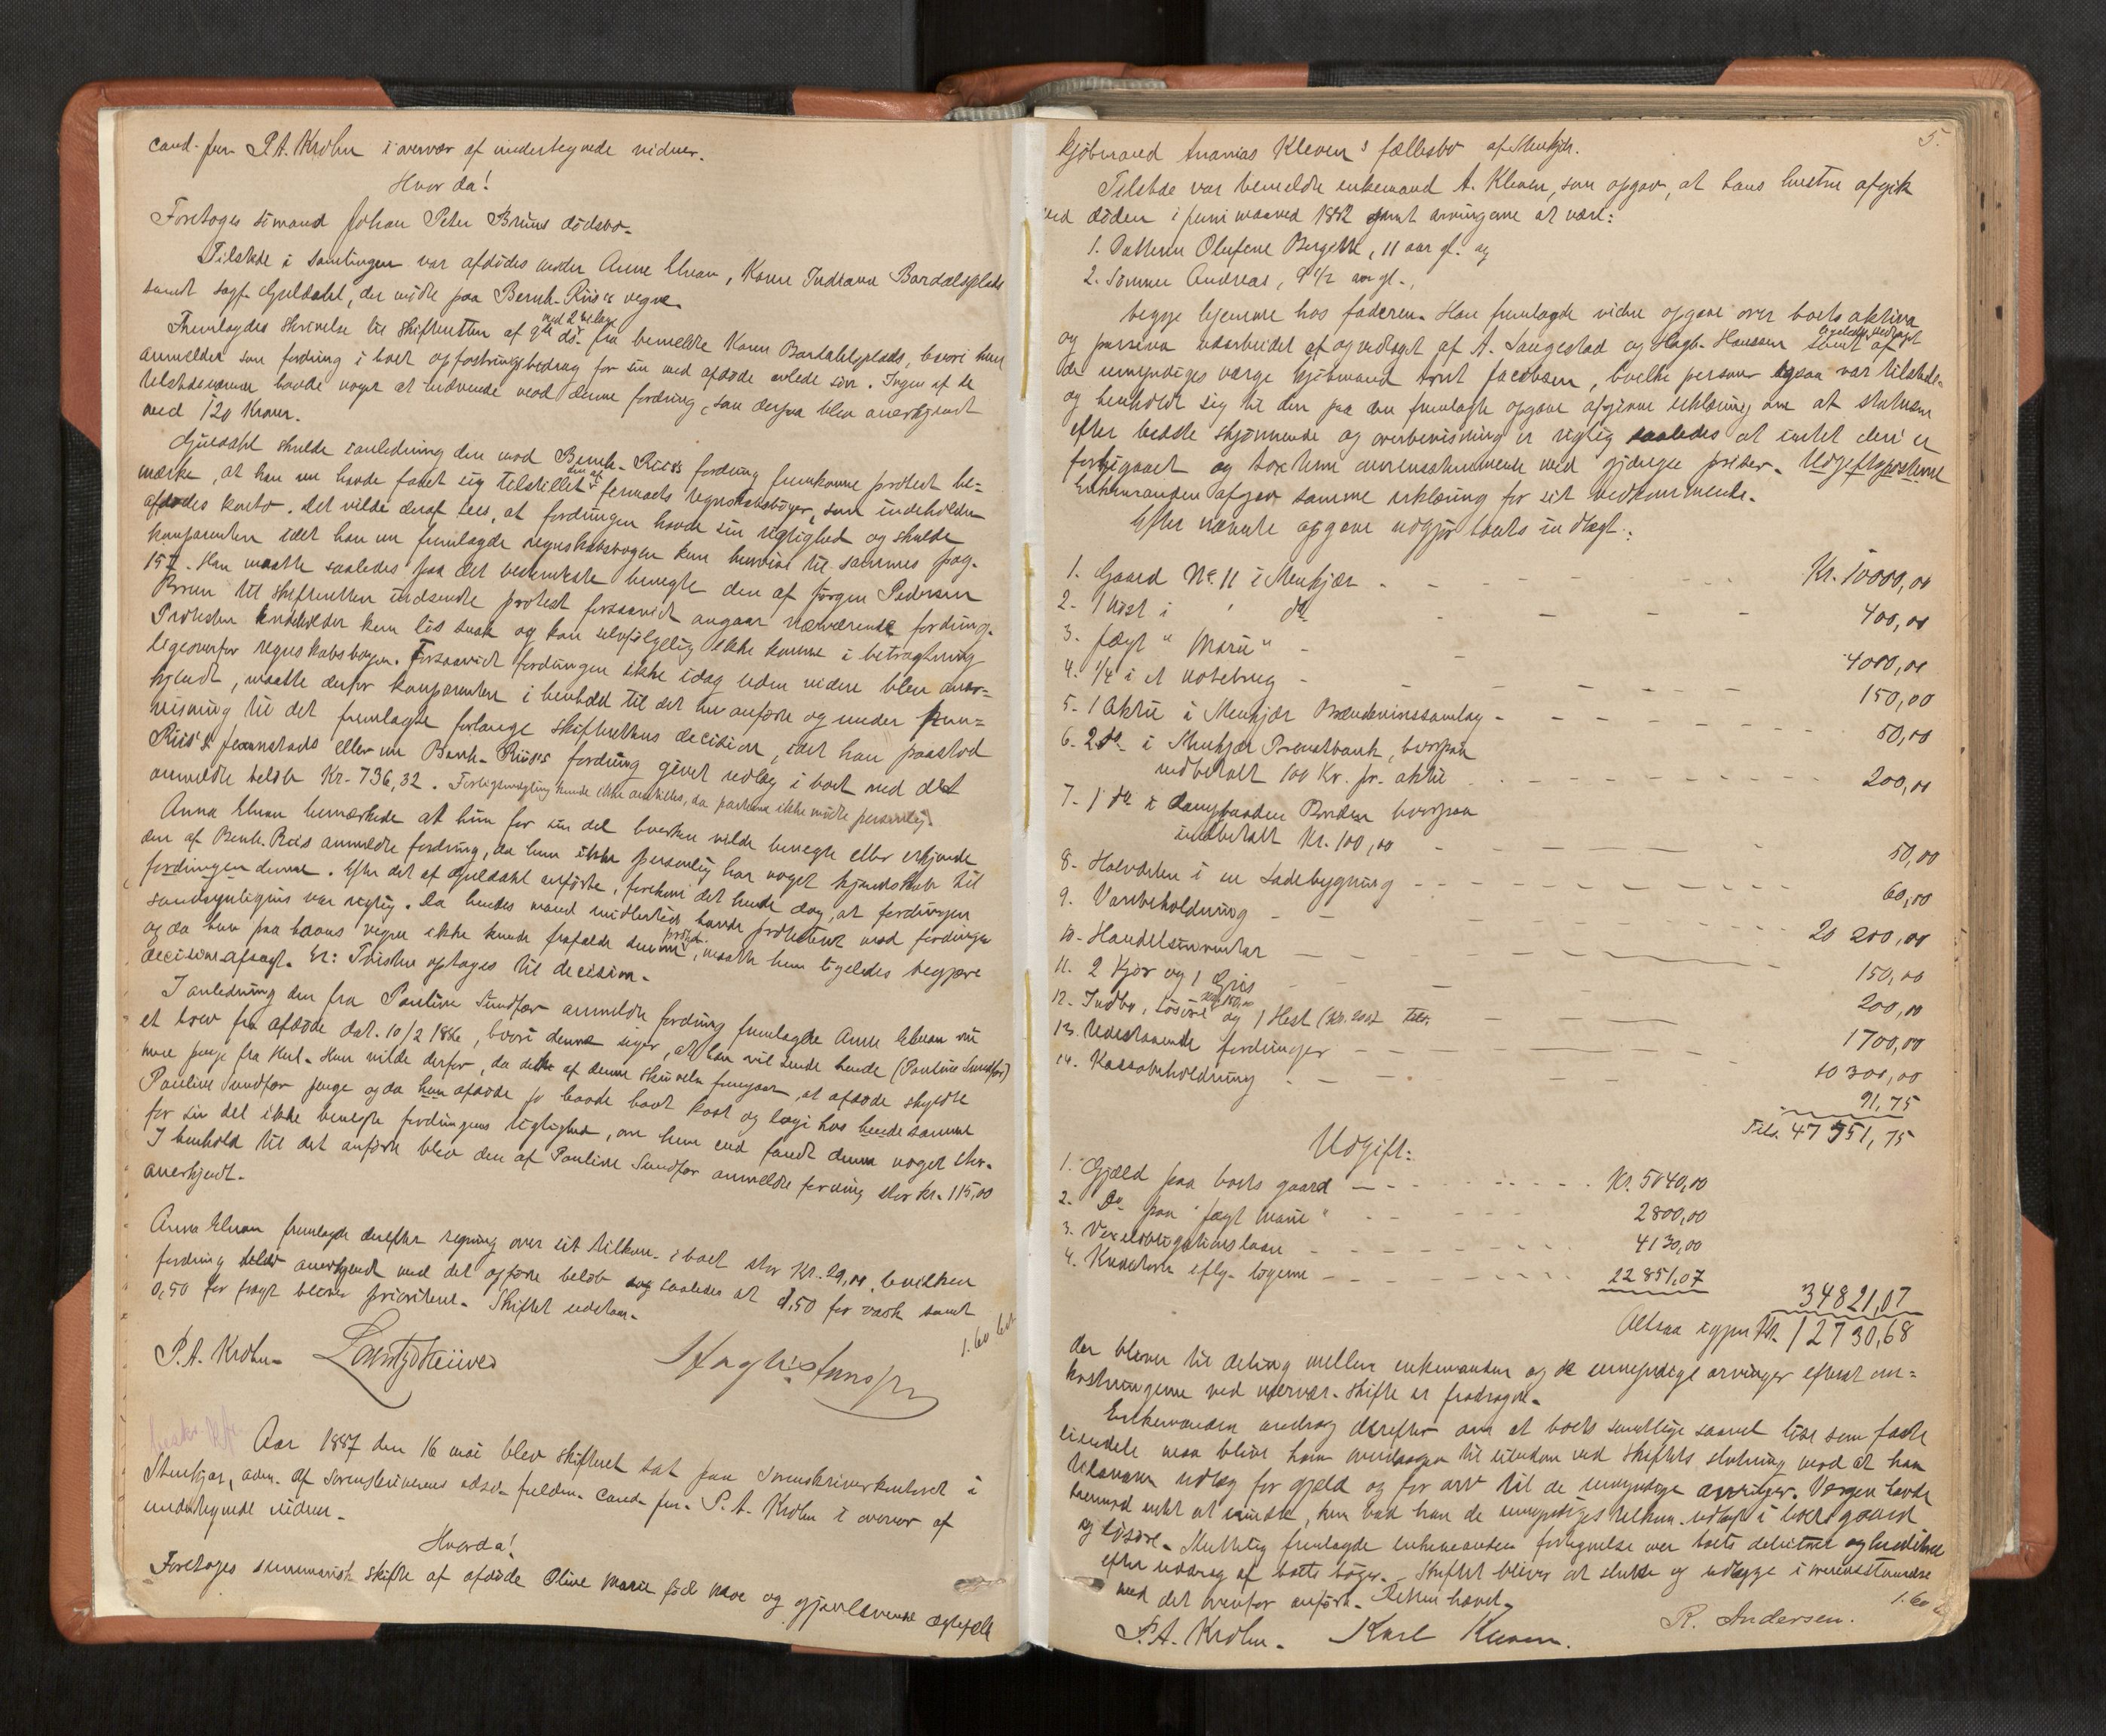 cand. jur. P. A. Krohn i overvær af undertegnede vidner.
Hvorda!
Foretoges sömand Johan Peter Bruuns dödsbo.
Tilstede i samlingen var afdödes moder Anne Elnan, Konen Indiana Bardalsplads
samt sagf. Guldahl, der mödte paa Bernh. Riis's vegne.
Fremlagdes skrivelse til skifteretten af 9de ds. med 2 bilag fra bemeldte Kone Bardalsplads, hvori hun
anmelder som fordring i boet opfostringsbidrag for sin med afdöde avlede sön. Ingen af de
tilstedeværende havde noget at indvende mod denne fordring, som derfra blev anerkjendt
med 120 Kroner.
Guldahl skulde i anledning den mod Bernh. Riis's fordring fremkomne protest be-
mærke, at han nu havde faaet sig tilstillet den af firmaets regnskabsböger, som indeholder
afdödes konto. Det vilde deraf sees, at fordringen havde sin rigtighed og skulde
komparenten idet han nu fremlagde regnskabsbogen kun henvise til sammes pag.
157. Han maatte saaledes paa det bestemteste benegte den af Jörgen Pedersen
Bruun til skifteretten indsendte protest forsaavidt angaar nærværende fordring.
Protesten indeholder kun lös snak og kan selvfölgelig ikke komme i betragtning
ligeoverfor regnskabsbogen. Forsaavidt fordringen ikke idag uden videre blev aner-
kjendt, maatte derfor komparenten i henhold til det nu anförte og under hen-
visning til det fremlagte forlange skifterettens decision, idet han paastod
Riis's paastands eller nu Bernh. Riis's fordring givet udlæg i boet med det
anmeldte belöb Kr. 736,32. Forligsmægling kunde ikke anstilles, da parterne ikke mödte personlig.
Anna Elnan bemærkede at hun for sin del hverken vilde benegte eller erkjende
den af Bernh. Riis anmeldte fordring, da hun ikke personlig har noget kjendskab til
fordringen denne. Efter det af Guldahl anförte, forekom det hende dog, at fordringen
sandsynligvis var rigtig. Da hendes mand imidlertid havde protesteret mod fordringen
og da hun paa hans vegne ikke kunde frafalde denne protest, maatte hun ligeledes begjære
decision afsagt. Er: Tvisten optages til decision.
I anledning den fra Pauline Sundför anmeldte fordring fremlagde Anne Elnan nu
et brev fra afdöde dat. 10/2 1886, hvori denne siger, at han vil sende hende (Pauline Sundför)
mere penge fra Hul. Hun vilde derfor, da dette af denne skrivelse fremgaar, at afdöde skyldte
Pauline Sundför penge og da han afdöde jo havde havt kost og logi hos hende samme
for sin del ikke benegte fordringens rigtighed, om hun end fandt denne noget stor.
I henhold til det anförte blev den af Pauline Sundför anmeldte fordring stor Kr. 115,00
anerkjendt.
Anna Elnan fremlagde derefter regning over sit tilkom. i boet stor Kr. 29,00, hvilken
fordring blev anerkjendt med det opförte belöb og saaledes at 1,50 for vask samt
0,50 for fragt bliver prioriteret. Skiftet udstaar.
1.60 bet.
P. A. Krohn.
Aar 1887 den 16 mai blev skifteret sat paa sorenskriverkontoret i
Stenkjær, adm. af sorenskriverens edsv. fuldm. cand. jur. P. A. Krohn i overvær af
undertegnede vidner.
Hvorda!
Foretoges summarisk skifte af afdöde Oline Marie föd Moe og gjenlevende ægtefælle
5.
kjöbmand Ananias Kleven's fællesbo af Stenkjær.
Tilstede var bemeldte enkemand A. Kleven, som opgav, at hans hustru afgik
ved döden i juni maaned 1882 samt arvingerne at være:
1. Datteren Olufine Bergitte, 11 aar gl. og
2. Sönnen Andreas, 9 1/2 aar gl.,
begge hjemme hos faderen. Han fremlagde videre opgave over boets aktiva
og passiva udarbeidet af og vedtaget af A. Langestad og Hagb. Hanssen samt ligeledes vedtaget af
de umyndiges værge kjöbmand Arnt Jacobsen, hvilke personer ogsaa var tilstede.
og henholdt sig til den paa den fremlagte opgave afgivne erklæring om at statusen
efter bedste skjönnende og overbevisning er rigtig saaledes at intet deri er
forbigaaet og taxterne overensstemmende med gjængse priser. Udgiftsposterne
Enkemanden afgav samme erklæring for sit vedkommende.
Efter nævnte opgave udgjör boets indtægt:
1. Gaard No. 11 i Stenkjær Kr. 10000,00
2. 1 nöst i do 400,00
3. Jægt "Marie" 4000,00
4. 1/4 i et notebrug 150,00
5. 1 Aktie i Stenkjær Brændevinssamlag 50,00
6. 2 do i Stenkjær Privatbank, hvorpaa
indbetalt 100 Kr. pr. aktie 200,00
7. 1 do i dampbaaden Borden hvorpaa
indbetalt Kr. 100,00 50,00
8. Halvdelen i en Ladebygning 60,00
9. Varebeholdning 20 200,00
10. Handelsinventar 150,00
11. 2 Kjör og 1 Gris 200,00
12. Indbo, lösöre og 1 Hest (Kr. 200) Tils. 1700,00
13. Udestaaende fordringer 10 300,00
14. Kassabeholdning 91,75
Tils. 47 551,75
Udgift:
1. Gjæld paa boets gaard Kr. 5040,00
2. Do paa "jægt Marie" 2800,00
3. Vexelobligationslaan 4130,00
4. Kreditorer eflg. bögerne 22 851,07
34821,07
Altsaa igjen Kr. 12730,68
der bliver til deling mellem enkemanden og de umyndige arvinger efterat om-
kostningerne ved nærvær. skifte er fradragne.
Enkemanden androg derefter om at boets samtlige saavel löse som faste
eiendele maa blive ham overdragen til eiendom ved skiftets slutning mod at han
tilsvarer udlæg for gjæld og for arv til de umyndige arvinger. Værgen havde
herimod intet at erindre, kun bad han de umyndiges tilkom. udlagt i boets gaard
og lösöre. Sluttelig fremlagde enkemanden fortegnelse over boets debitorer og kreditorer
efter uddrag af boets böger. Skiftet bliver at slutte og udlægge i overensstemmelse
med det ovenfor anförte. Retten hævet.
1.60
P. A. Krohn. Karl Kleven. R. Andersen.